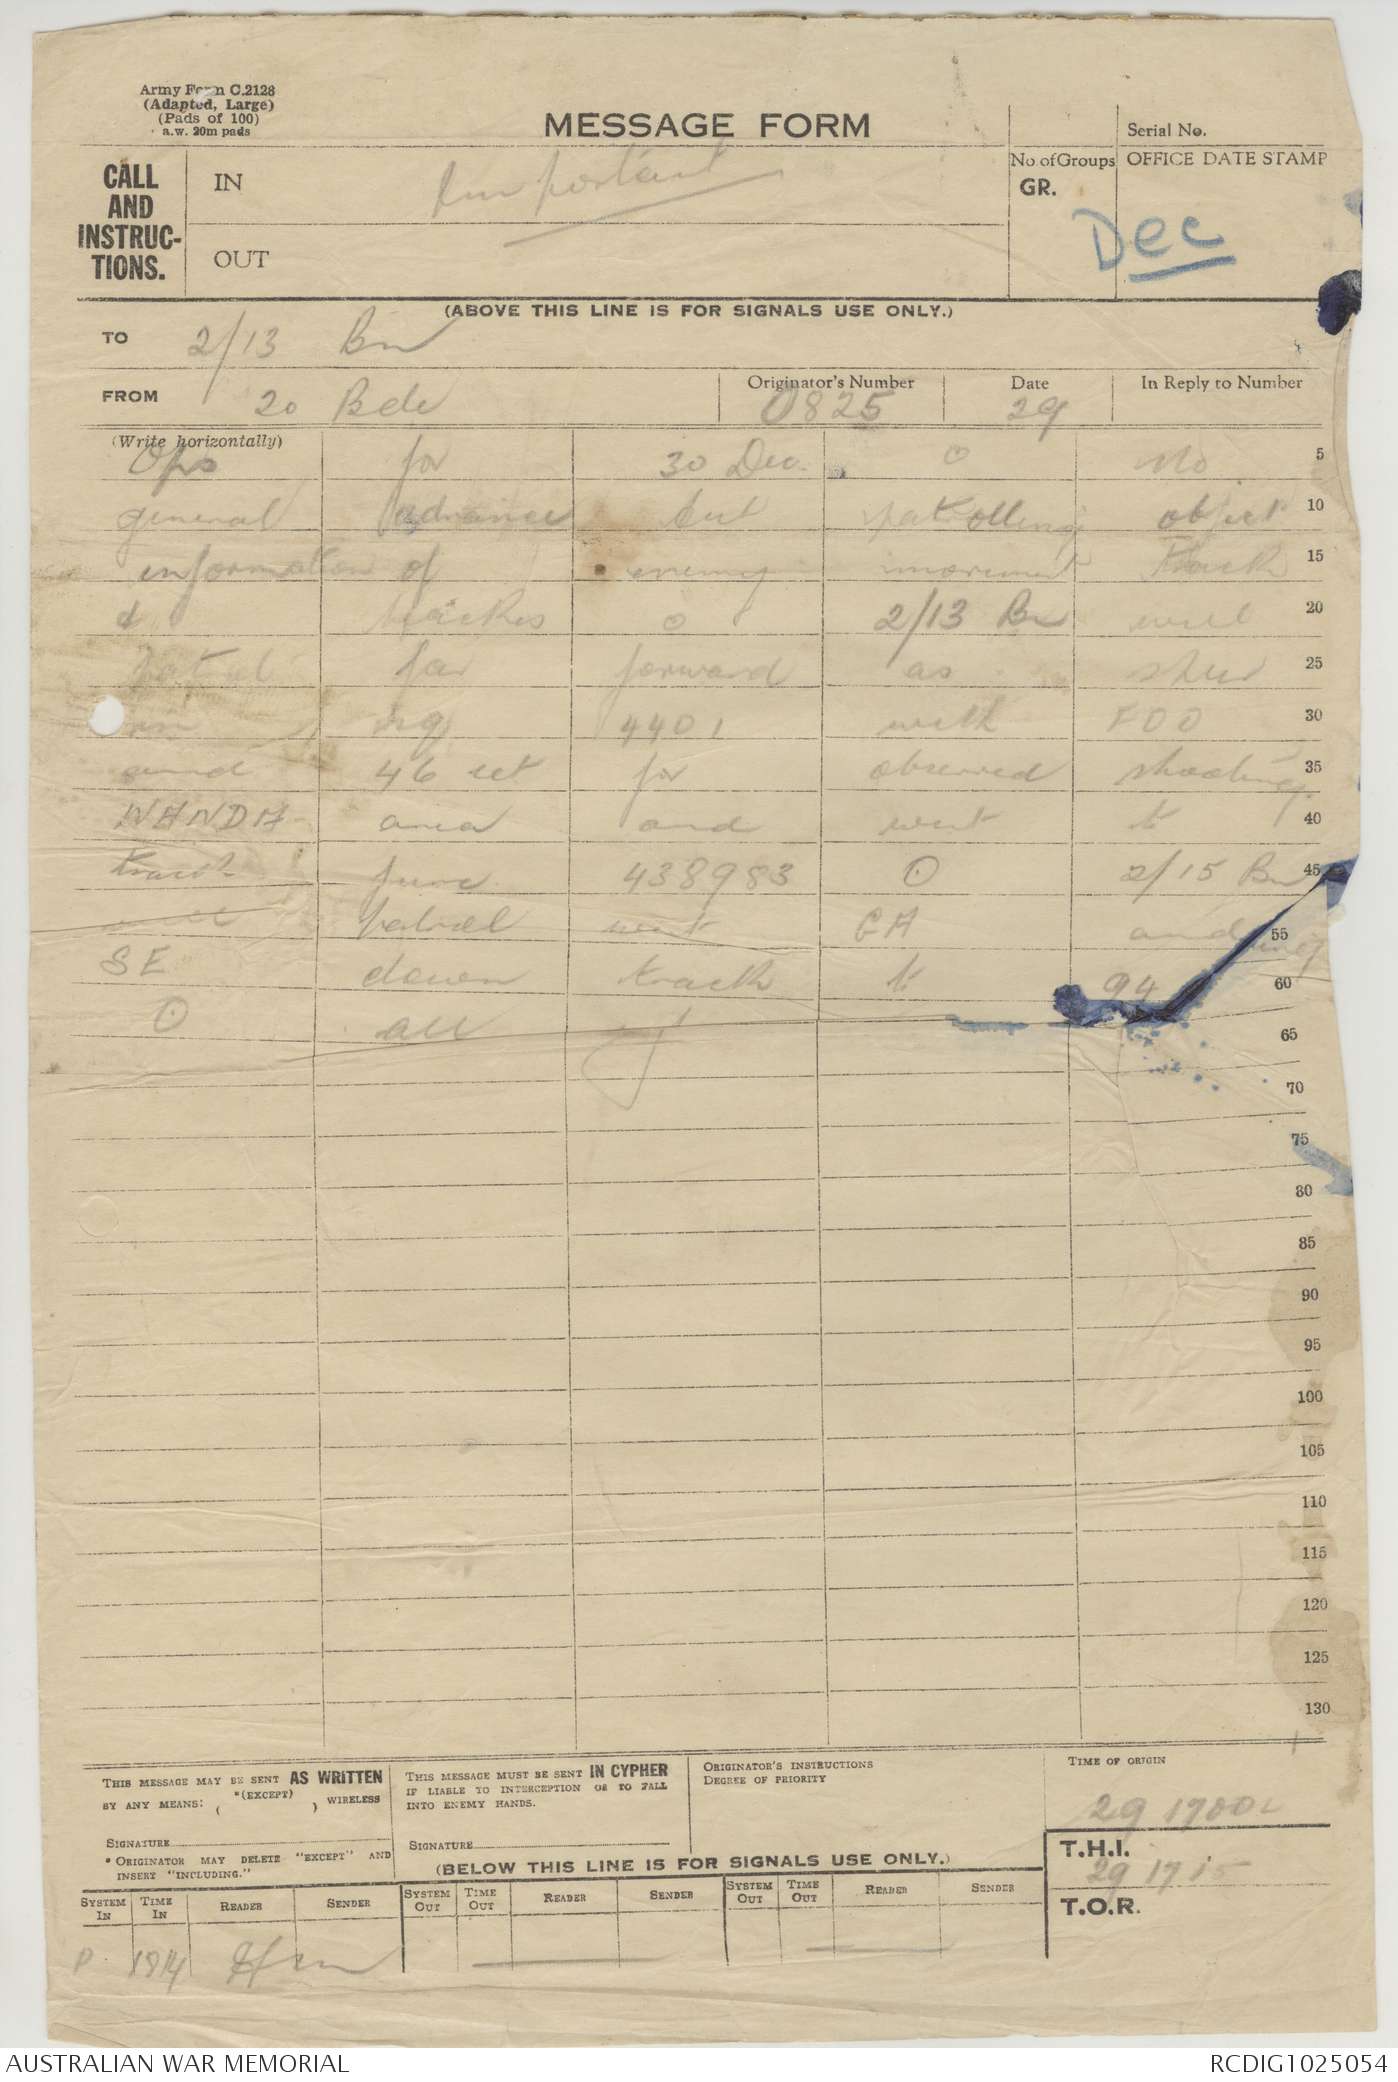 Army Form C.2128
(Adapted, Large)
(Pads of 100)
a.w. 20m pads
MESSAGE FORM
Serial No.
CALL
AND
INSTRUC-
TIONS.
IN
Important
OUT
No of Groups
GR.
OFFICE DATE STAMP
Dec
(ABOVE THIS LINE IS FOR SIGNALS USE ONLY.)
TO 2/13 Bn
FROM 20 Bde
Originator's Number
0825
Date
29
In Reply to Number
(Write horizontally)
Ops for 30 Dec. O No 5
general advance but patrolling object 10
information of enemy movement track 15
& tracks O 2/13 Bn will 20
patrol far forward as 25
rg 4401 with FOO 30
and 46 set for observed shooting 35
WANDA area and west to 40
track junc 438983 O 2/15 Bn 45
will patrol west GA and 55
SE down track to 94 60
O all 65
70
75
80
85
90
95
100
105
110
115
120
125
130
THIS MESSAGE MAY BE SENT AS WRITTEN
BY ANY MEANS: ( *(EXCEPT) ) WIRELESS
SIGNATURE
* ORIGINATOR MAY DELETE "EXCEPT" AND
INSERT "INCLUDING."
THIS MESSAGE MUST BE SENT IN CYPHER
IF LIABLE TO INTERCEPTION OR TO FALL
INTO ENEMY HANDS.
SIGNATURE
ORIGINATOR'S INSTRUCTIONS
DEGREE OF PRIORITY
TIME OF ORIGIN
29 1700L
(BELOW THIS LINE IS FOR SIGNALS USE ONLY.)
T.H.I.
29 17 15
T.O.R.
SYSTEM IN TIME IN READER SENDER SYSTEM OUT TIME OUT READER SENDER SYSTEM OUT TIME OUT READER SENDER
P 1814
AUSTRALIAN WAR MEMORIAL
RCDIG1025054